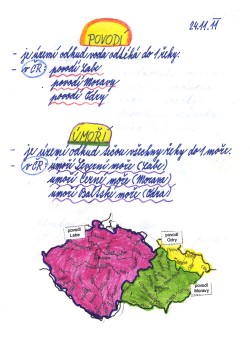 24.11. 11
POVODÍ
- je území odkud voda odtéká do 1 řeky.
- v ČR: povodí Labe
· povodí Moravy
povodí Odry
ÚMOŘÍ
- je území odkud tečou všechny řeky do 1 moře.
- v ČR: úmoří Severní moře (Labe)
úmoří Černé moře (Morava)
úmoří Baltské moře (Odra)
povodí
Labe
povodí
Odry
povodí
Moravy